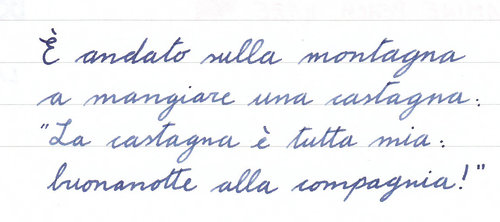 È andato sulla montagna
a mangiare una castagna:
"La castagna è tutta mia:
buonanotte alla compagnia!"